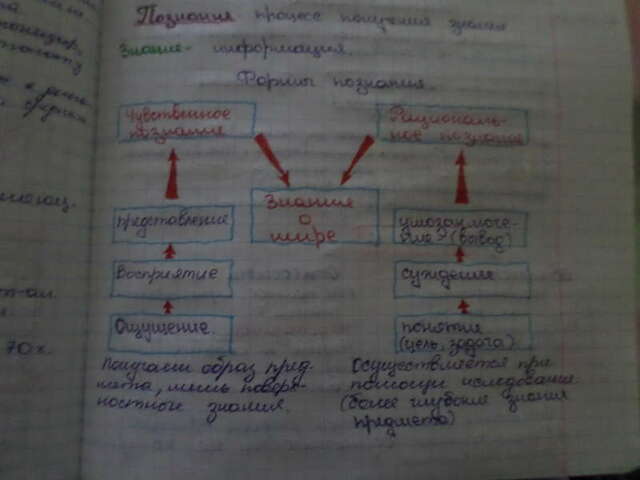 Познание процесс получения знания
Знание - информация.
Формы познания.
Чувственное
познание
Рациональ-
ное познание
Знания
о
мире
представление
умозаключе-
(вывод)
Восприятие
суждение
Ощущение.
понятие
(цель, задача)
Получаем образ пред-
мета, лишь поверх-
ностное знания.
Осуществляется при
помощи исследования
(более глубокие знания
предмета)
70х.